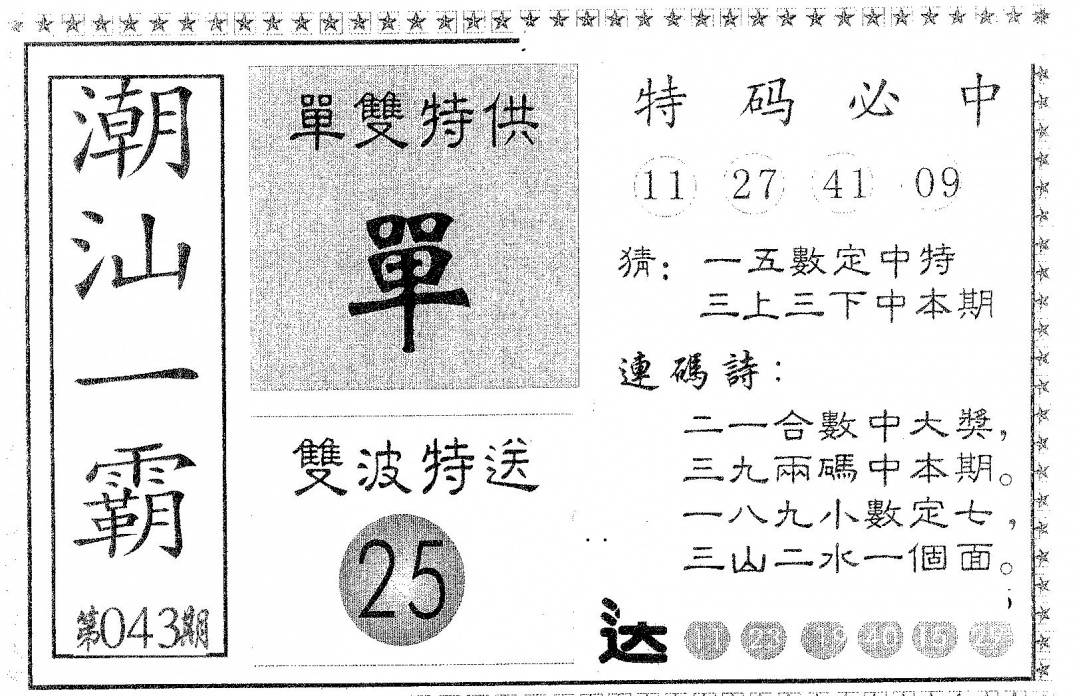 潮汕一霸
第043期
單雙特供
單
雙波特送
25
特码必中
11 27 41 09
猜：一五數定中特
三上三下中本期
連碼詩：
二一合數中大獎，
三九兩碼中本期。
一八九小數定七，
三山二水一個面。
送 11 23 19 40 15